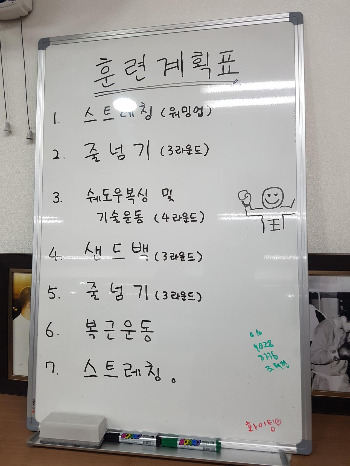 훈련계획표
1. 스트레칭 (워밍업)
2. 줄넘기 (3라운드)
3. 쉐도우복싱 및
기술운동 (4라운드)
4. 샌드백 (3라운드)
5. 줄넘기 (3라운드)
6. 복근운동
7. 스트레칭。
화이팅